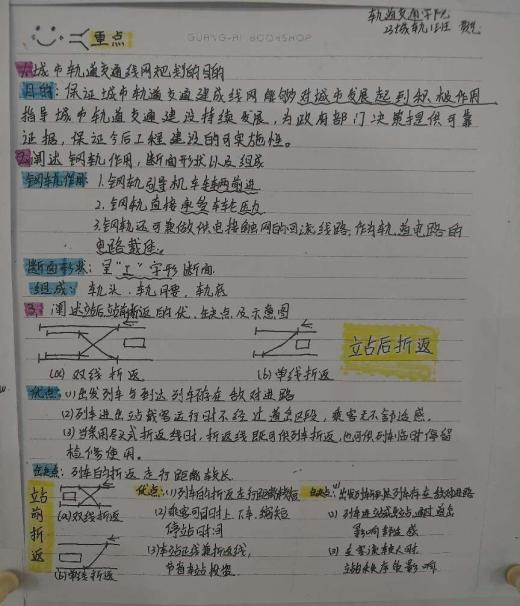 轨道交通学院
23城轨1班
重点
GUANG-AI BOOKSHOP
1.城市轨道交通线网规划的目的
目的:保证城市轨道交通建成线网能够对城市发展起到积极作用
指导城市轨道交通建设持续发展,为政府部门决策提供可靠
证据,保证今后工程建设的可实施性。
2.阐述钢轨作用,断面形状以及组成
钢轨作用:1.钢轨引导机车车辆前进
2.钢轨直接承受车轮压力
3.钢轨还可兼做供电接触网的回流线路,作为轨道电路的
电路载体。
断面形状:呈“工”字形断面
组成:轨头、轨腰、轨底
3.阐述站后站前折返的优、缺点及示意图
(a)双线折返
(b)单线折返
立站后折返
优点:(1)出发列车与到达列车存在敌对进路
(2)列车进出站载客运行时不经过道岔区段,乘客无不舒适感
(3)当采用尽头式折返线时,折返线既可供列车折返,也可供列车临时停留
检修使用。
缺点:列车的折返走行距离较长
立站前折返
(a)双线折返
(b)单线折返
优点:(1)列车的折返走行距离较短
(2)乘客可同时上、下车,缩短
停站时间
(3)车站正线兼折返线,
节省车站投资
缺点:(1)出发列车到达列车存在敌对进路
(2)列车进站或出站通过道岔
影响舒适感
(3)主客流较大时
站台秩序受影响